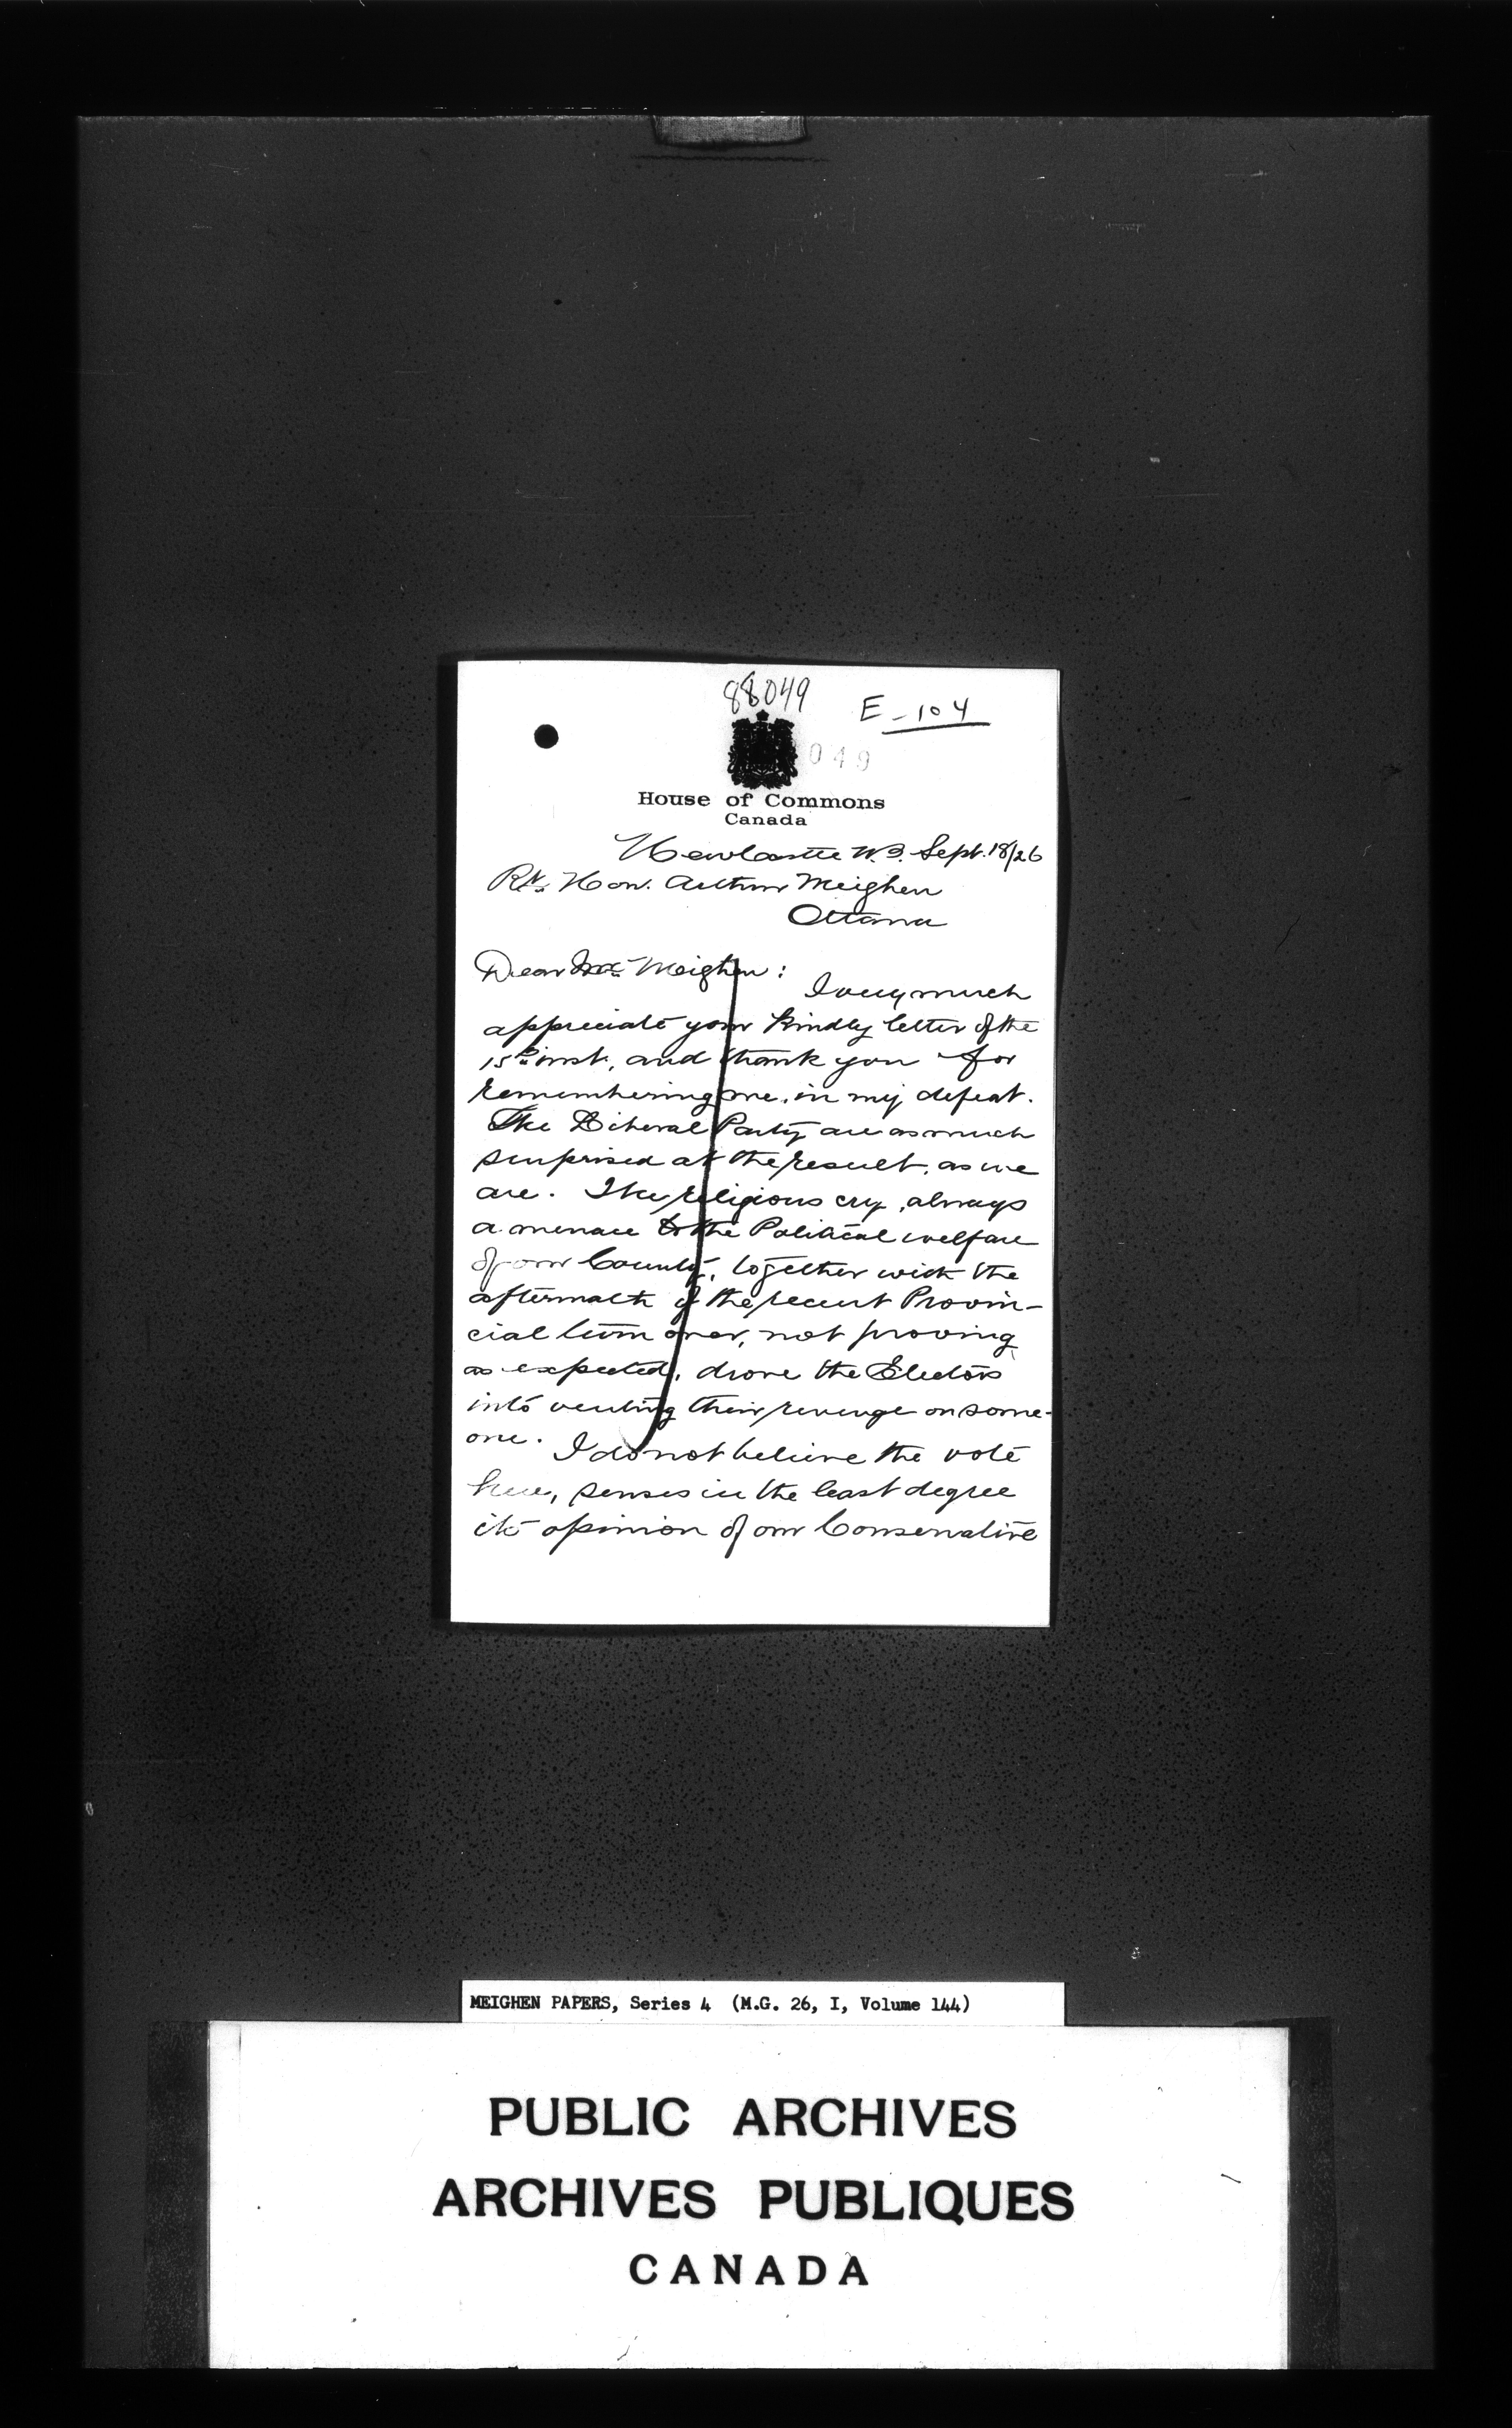 88049
E-104
049
House of Commons
Canada
Newcastle N.B. Sept. 18/26
Rt. Hon. Arthur Meighen
Ottawa
Dear Mr. Meighen:
I very much
appreciate your kindly letter of the
15th inst, and thank you for
remembering me, in my defeat.
The Liberal Party are as much
surprised at the result, as we
are. The religious cry, always
a menace to the Political welfare
of our County, together with the
aftermath of the recent Provin-
cial turn over, not proving
as expected, drove the Electors
into venting their revenge on some-
one. I do not believe the vote
here, senses in the least degree
its opinion of our Conservative
MEIGHEN PAPERS, Series 4 (M.G. 26, I, Volume 144)
PUBLIC ARCHIVES
ARCHIVES PUBLIQUES
CANADA